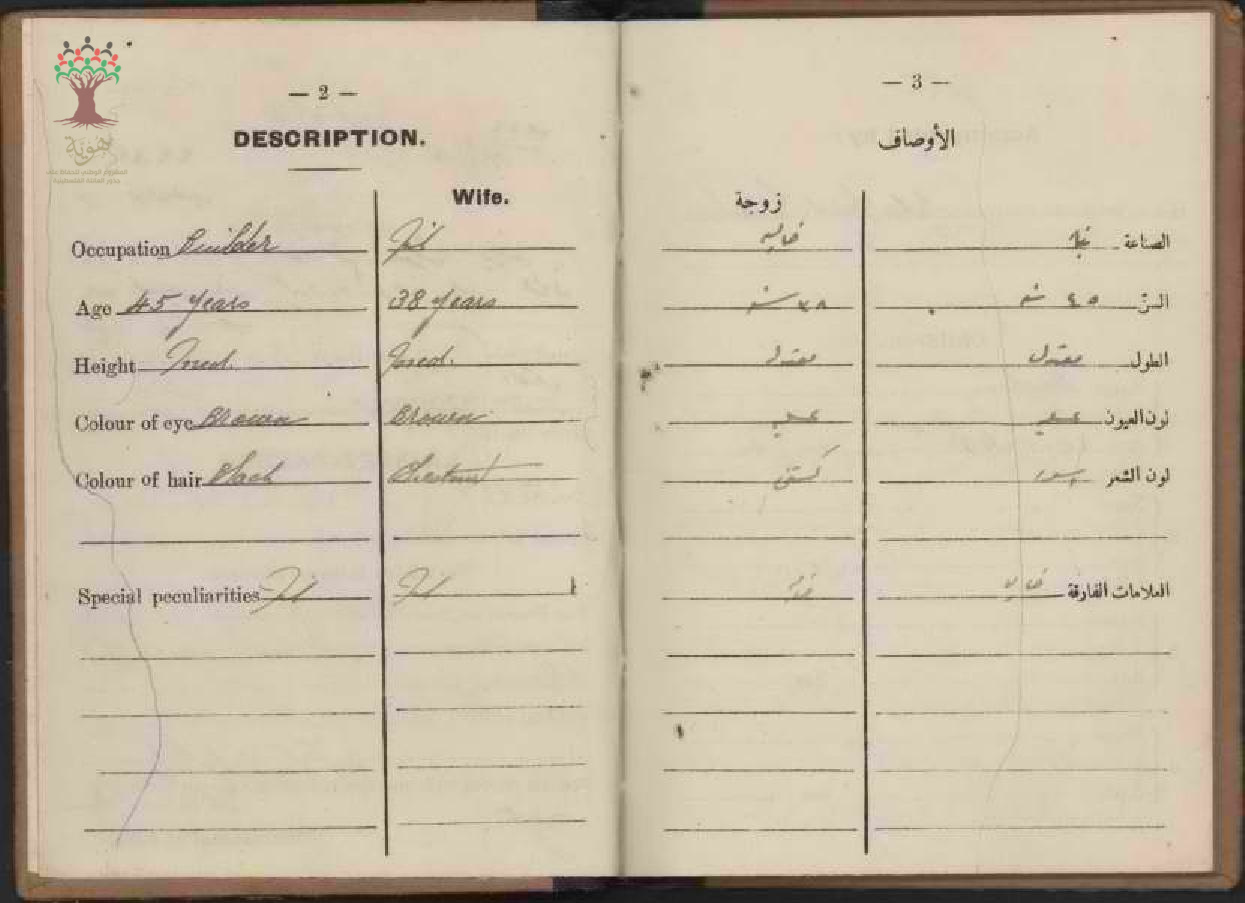 هوية
— 2 —
DESCRIPTION.
Wife.
Occupation Builder Nil
Age 45 years 38 years
Height Med. Med.
Colour of eye Brown Brown
Colour of hair Black Chestnut
Special peculiarities Nil Nil
— 3 —
الأوصاف
زوجة
الصناعة خالية
السنّ ٤٥ سنة ٣٨ سنة
الطول معتدل معتدل
لون العيون عسلي عسلي
لون الشعر اسود كستني
العلامات الفارقة خالية